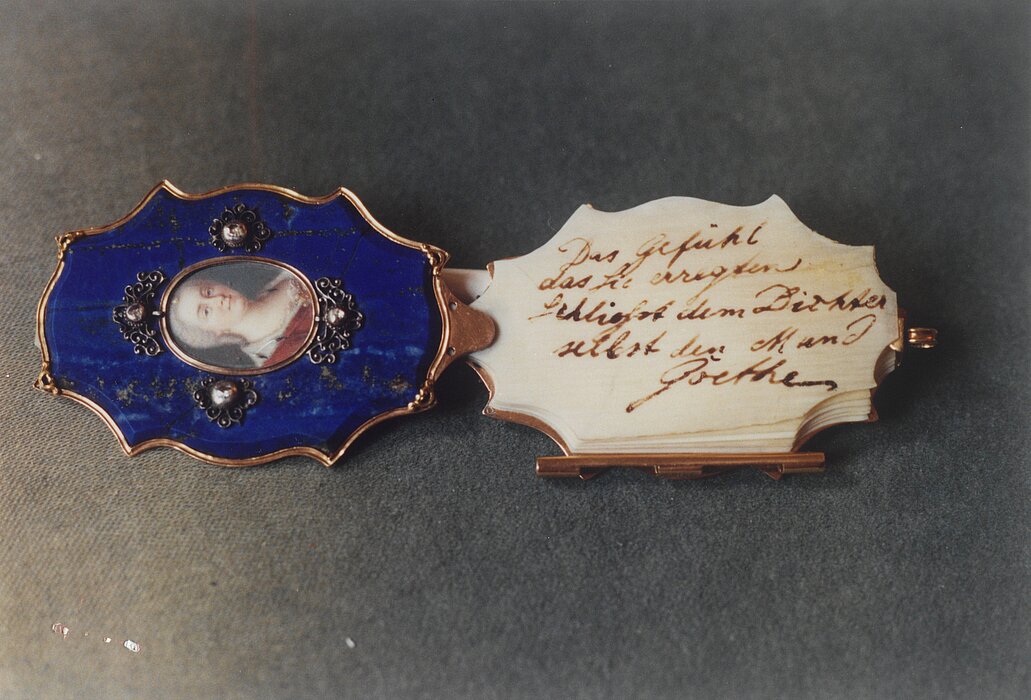 Das Gefühl
das Sie erregten
schließt dem Dichter
selbst den Mund
Goethe